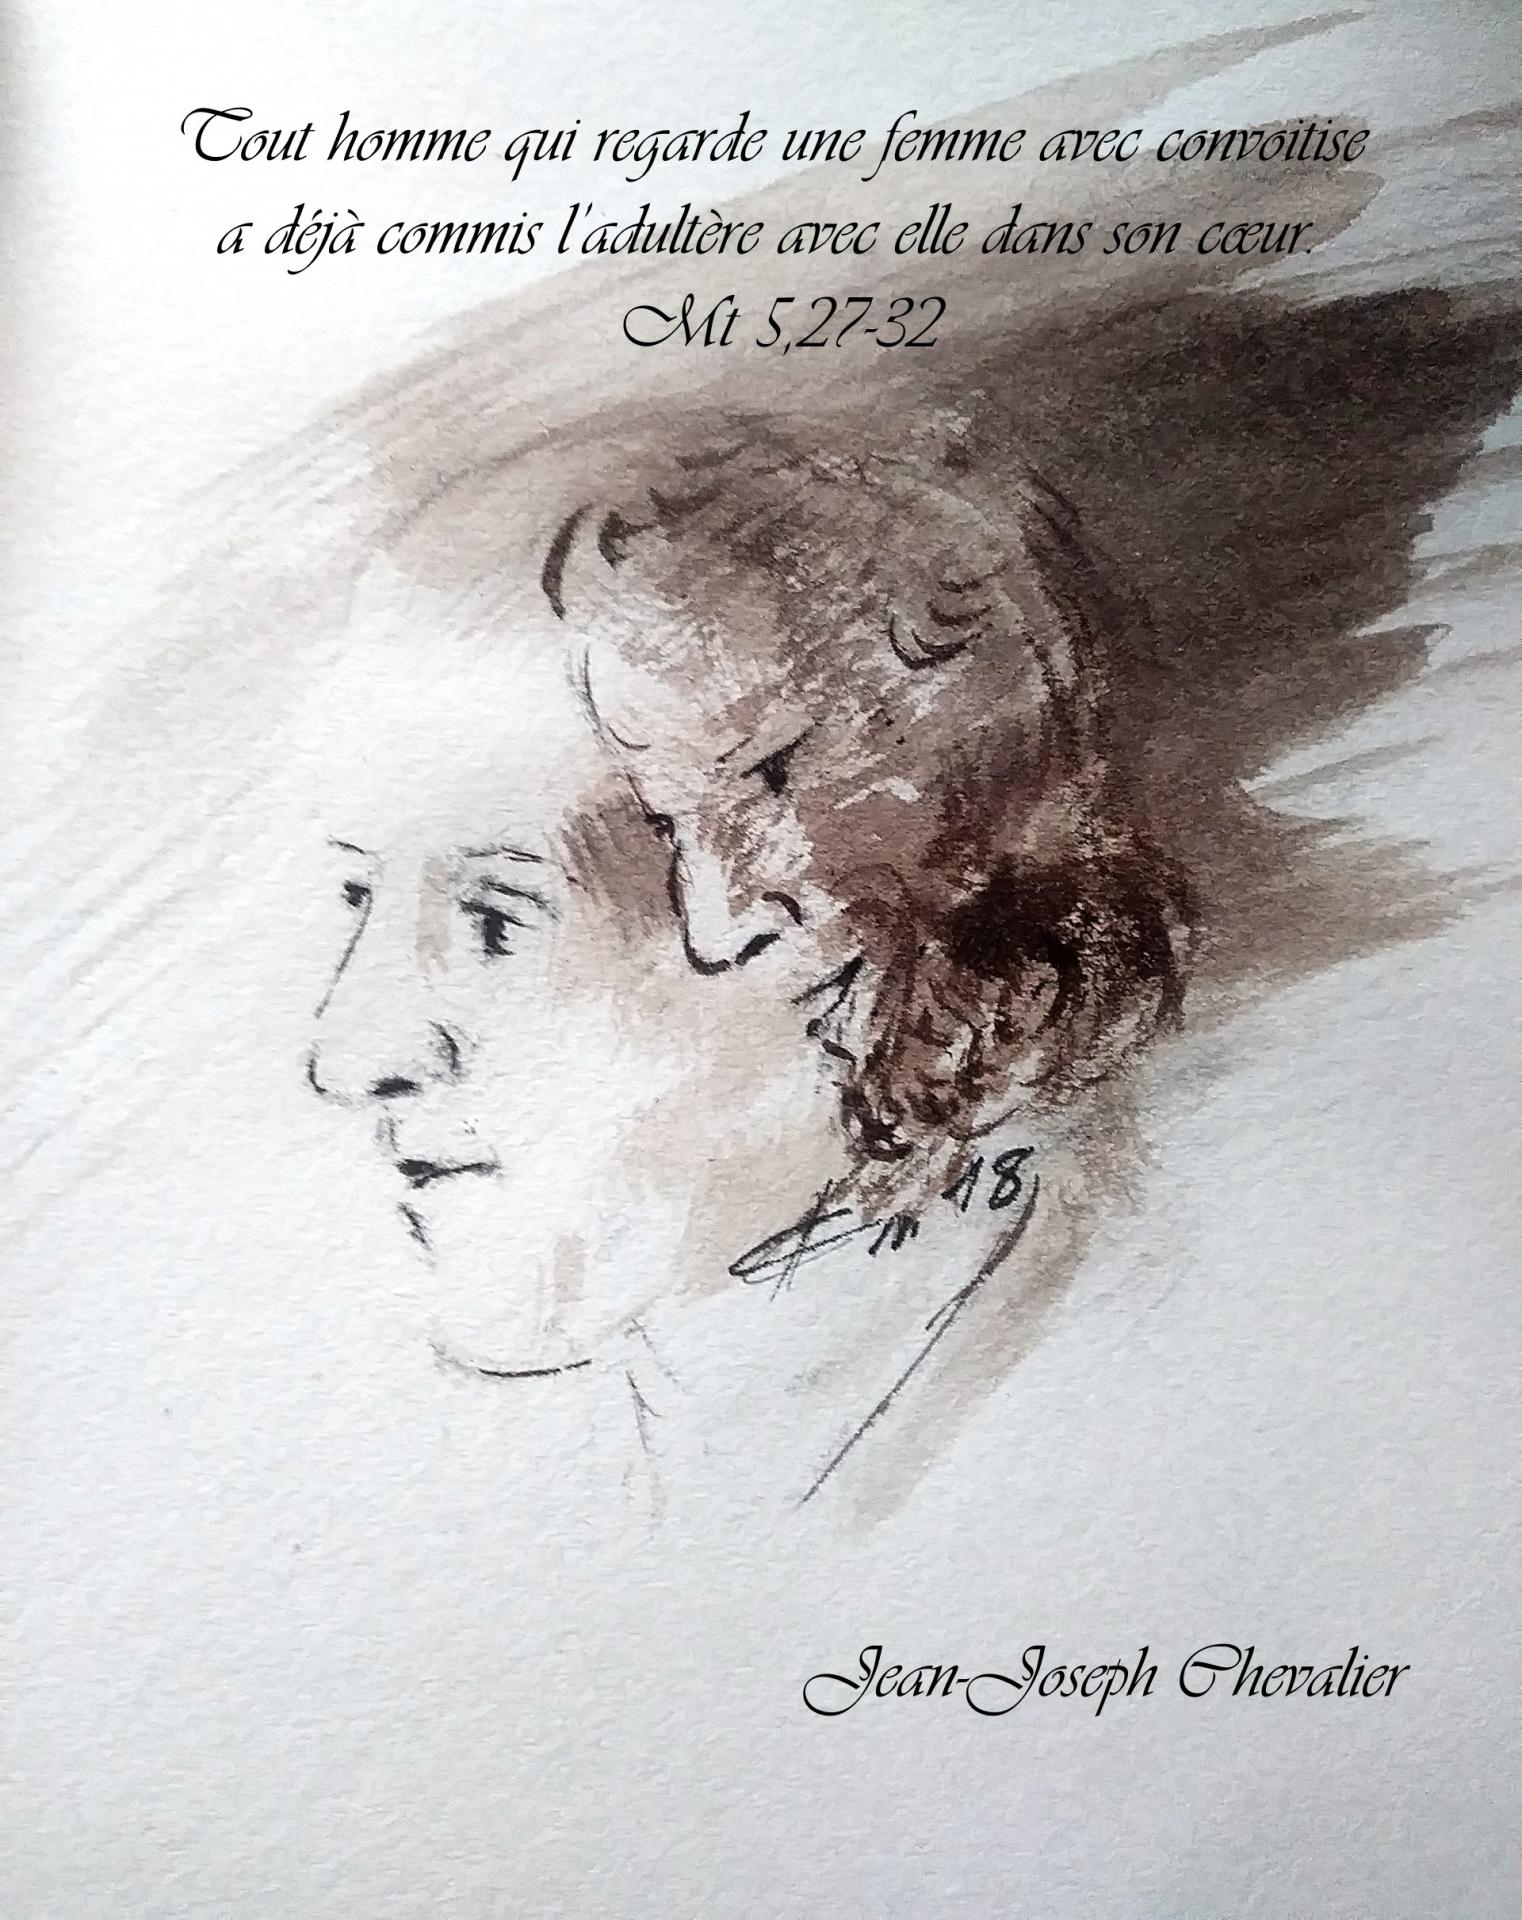 Tout homme qui regarde une femme avec convoitise
a déjà commis l'adultère avec elle dans son cœur.
Mt 5,27-32
18
Jean-Joseph Chevalier